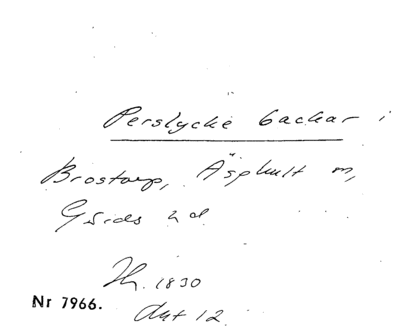 Perslycke backar i
Brostorp, Äsphult m,
Gärds hd
Th. 1830
Nr 7966.
Akt 12